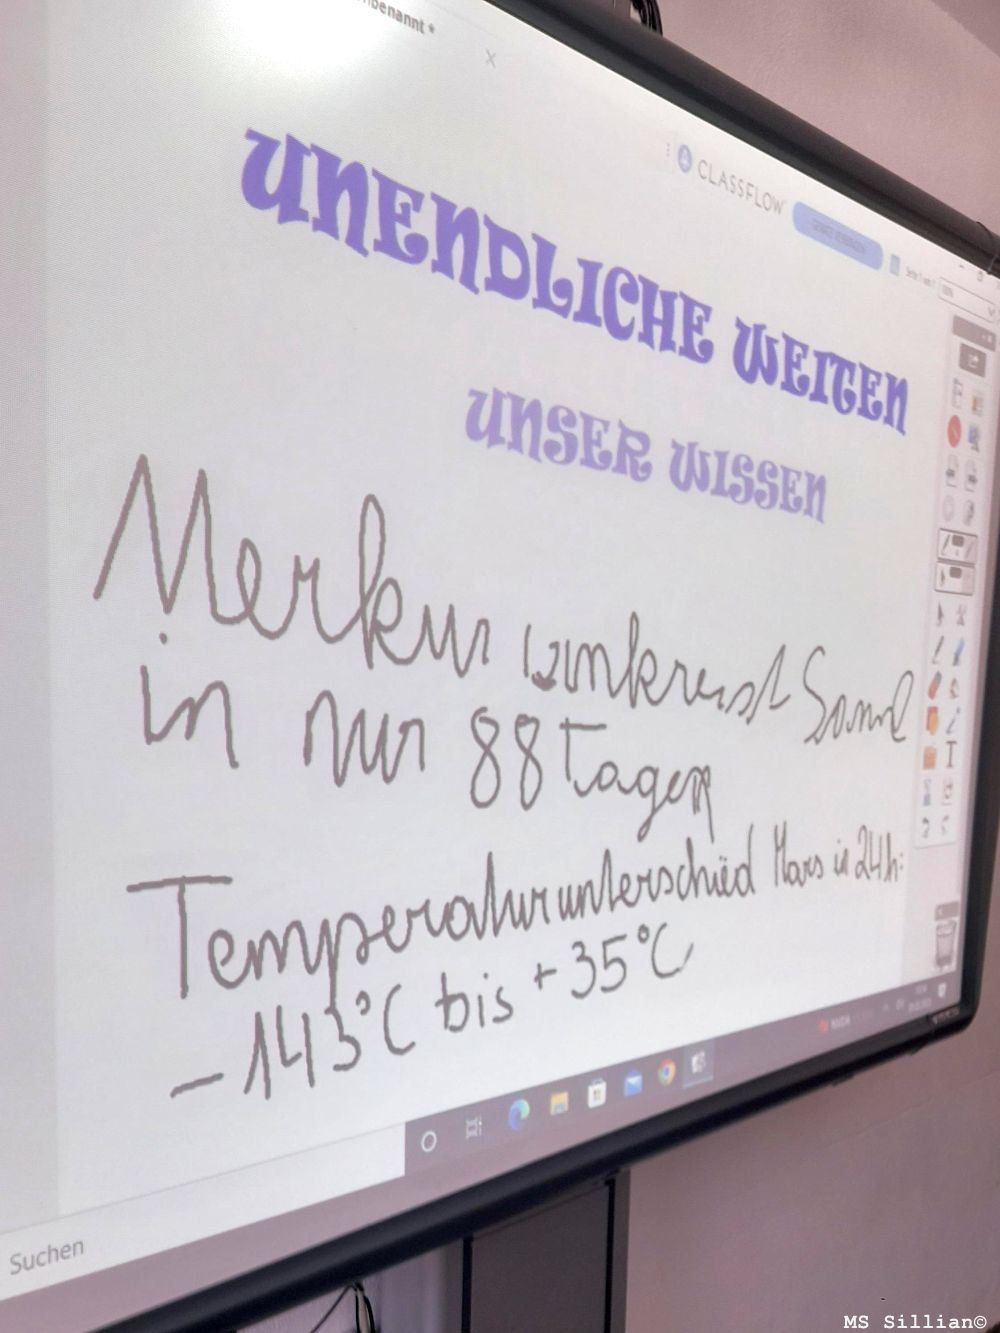 benannt *
CLASSFLOW
UNENDLICHE WEITEN
UNSER WISSEN
Merkur umkreist Sonne
in nur 88 Tagen
Temperaturunterschied Mars in 24h:
-143°C bis +35°C
Suchen
MS Sillian©